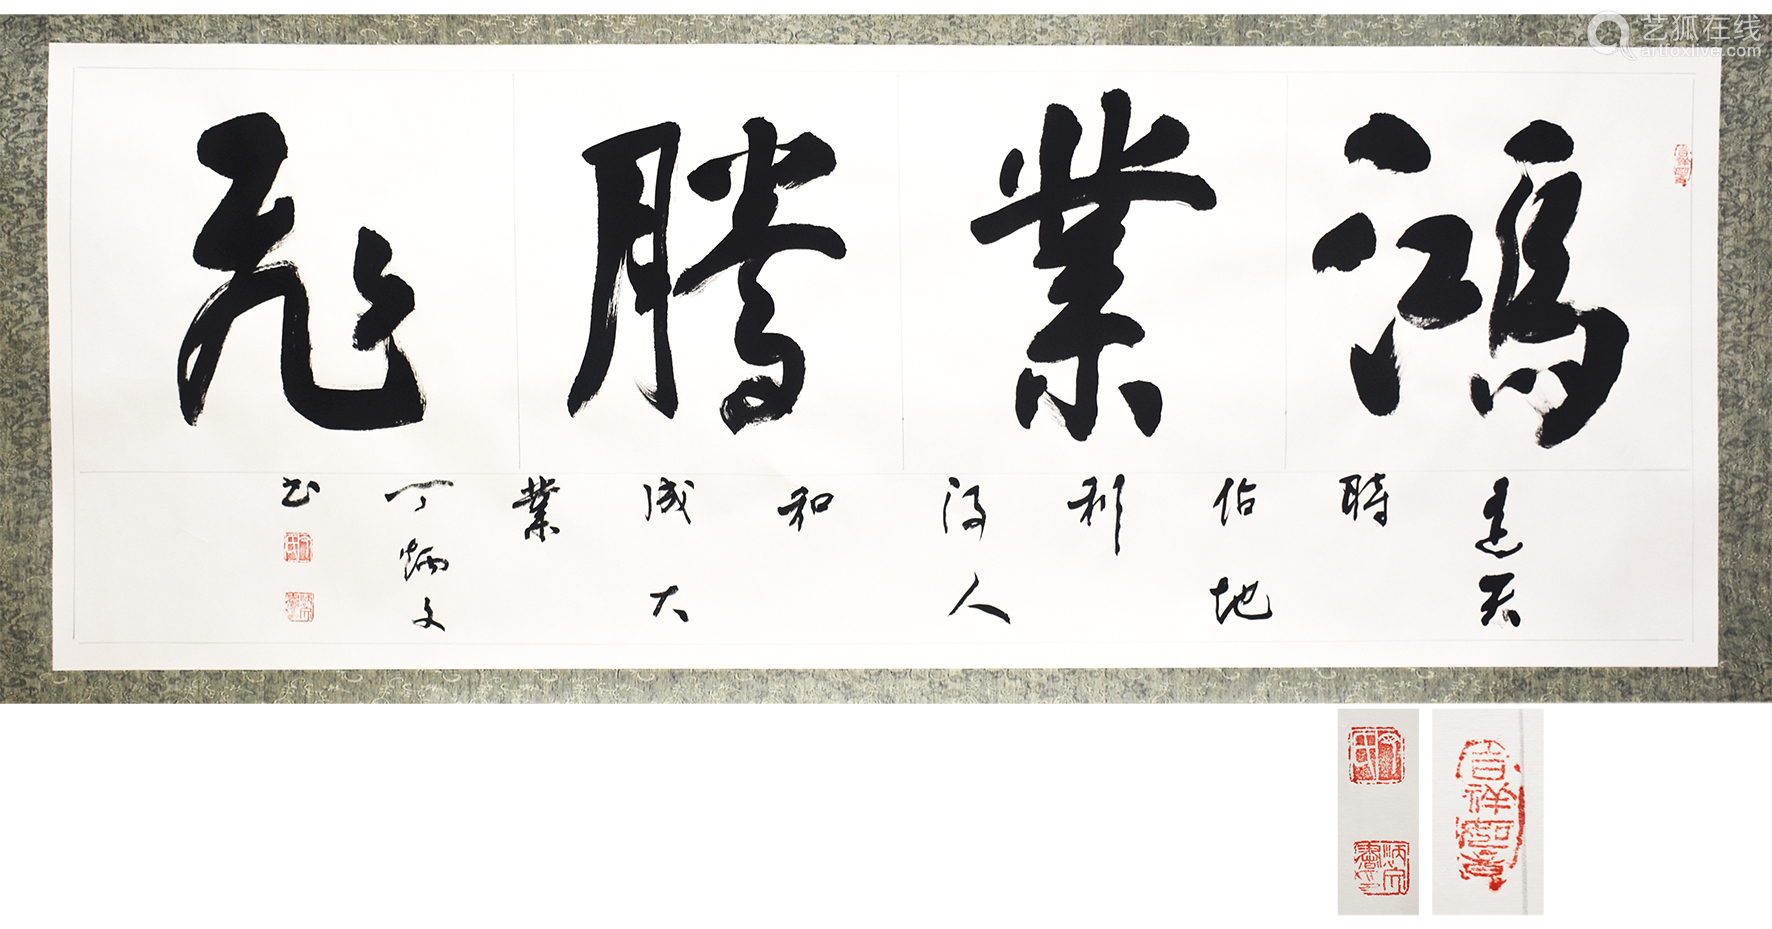 艺狐在线
artfoxlive.com
鴻業騰飛
吉祥如意
天
時
佔地
利
得人
和
成大
業
丁炳文
书
吉祥如意